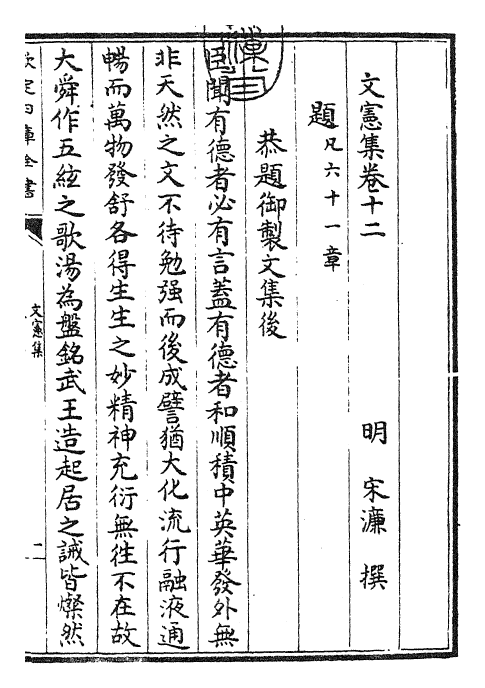 文憲集卷十二
明 宋濂 撰
題凡六十一章
恭題御製文集後
臣聞有德者必有言蓋有德者和順積中英華發外無
非天然之文不待勉强而後成譬猶大化流行融液通
暢而萬物發舒各得生生之妙精神充衍無徃不在故
大舜作五絃之歌湯為盤銘武王造起居之誡皆燦然
欽定四庫全書
文憲集